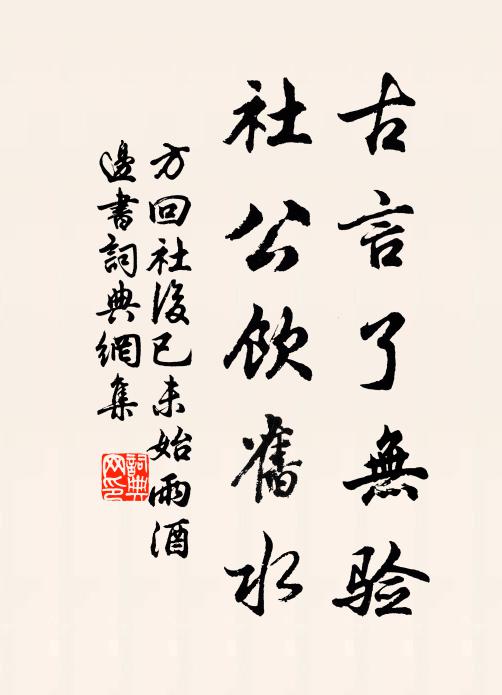 古言了無验
社公飲舊水
方回社後己未始雨酒
邊書詞典網集
詞典網印